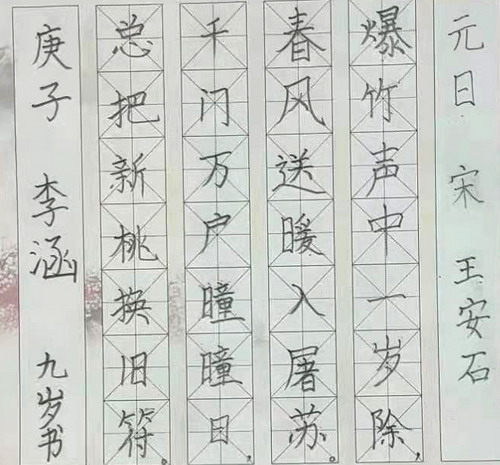 元日 宋 王安石
爆竹声中一岁除，
春风送暖入屠苏。
千门万户曈曈日，
总把新桃换旧符。
庚子 李涵 九岁书